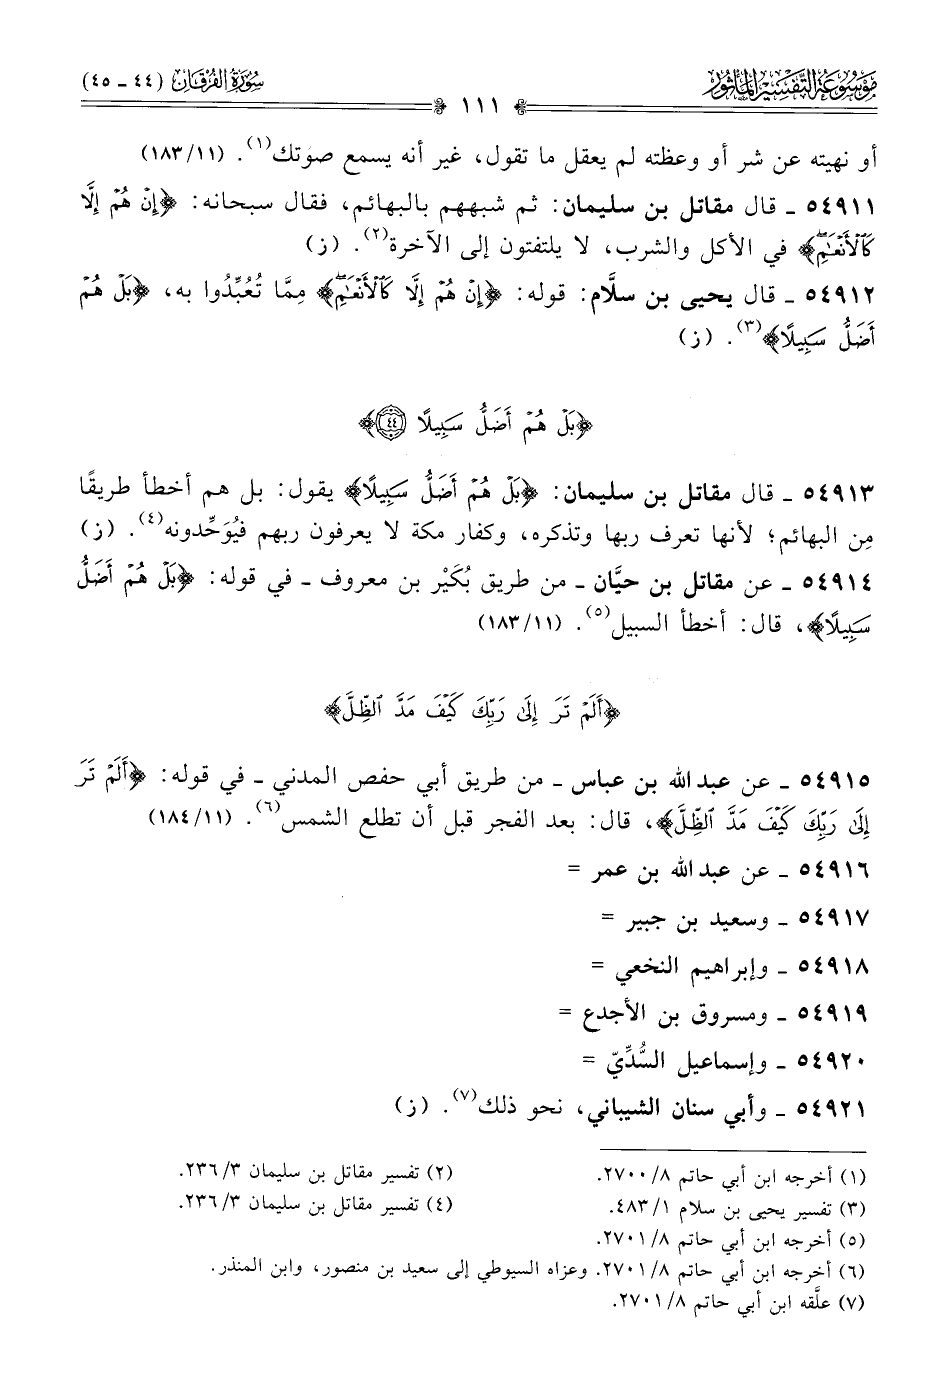 مَوْسُوعَة التَّفْسِير المَأْثُور
سُورَةُ الفُرْقَان (٤٤ - ٤٥)
١١١
أو نهيته عن شر أو وعظته لم يعقل ما تقول، غير أنه يسمع صوتك(١). (١٨٣/١١)
٥٤٩١١ - قال مقاتل بن سليمان: ثم شبههم بالبهائم، فقال سبحانه: ﴿إِنْ هُمْ إِلَّا
كَالْأَنْعَٰمِ﴾ في الأكل والشرب، لا يلتفتون إلى الآخرة(٢). (ز)
٥٤٩١٢ - قال يحيى بن سلَّام: قوله: ﴿إِنْ هُمْ إِلَّا كَالْأَنْعَٰمِ﴾ مِمَّا تُعُبِّدُوا به، ﴿بَلْ هُمْ
أَضَلُّ سَبِيلًا﴾(٣). (ز)
﴿بَلْ هُمْ أَضَلُّ سَبِيلًا ٤٤﴾
٥٤٩١٣ - قال مقاتل بن سليمان: ﴿بَلْ هُمْ أَضَلُّ سَبِيلًا﴾ يقول: بل هم أخطأ طريقًا
مِن البهائم؛ لأنها تعرف ربها وتذكره، وكفار مكة لا يعرفون ربهم فيُوَحِّدونه(٤). (ز)
٥٤٩١٤ - عن مقاتل بن حيَّان - من طريق بُكَيْر بن معروف - في قوله: ﴿بَلْ هُمْ أَضَلُّ
سَبِيلًا﴾، قال: أخطأ السبيل(٥). (١٨٣/١١)
﴿أَلَمْ تَرَ إِلَىٰ رَبِّكَ كَيْفَ مَدَّ ٱلظِّلَّ﴾
٥٤٩١٥ - عن عبد الله بن عباس - من طريق أبي حفص المدني - في قوله: ﴿أَلَمْ تَرَ
إِلَىٰ رَبِّكَ كَيْفَ مَدَّ ٱلظِّلَّ﴾، قال: بعد الفجر قبل أن تطلع الشمس(٦). (١٨٤/١١)
٥٤٩١٦ - عن عبد الله بن عمر =
٥٤٩١٧ - وسعيد بن جبير =
٥٤٩١٨ - وإبراهيم النخعي =
٥٤٩١٩ - ومسروق بن الأجدع =
٥٤٩٢٠ - وإسماعيل السُّدِّيّ =
٥٤٩٢١ - وأبي سنان الشيباني، نحو ذلك(٧). (ز)
(١) أخرجه ابن أبي حاتم ٢٧٠٠/٨. (٢) تفسير مقاتل بن سليمان ٢٣٦/٣.
(٣) تفسير يحيى بن سلام ٤٨٣/١. (٤) تفسير مقاتل بن سليمان ٢٣٦/٣.
(٥) أخرجه ابن أبي حاتم ٢٧٠١/٨.
(٦) أخرجه ابن أبي حاتم ٢٧٠١/٨. وعزاه السيوطي إلى سعيد بن منصور، وابن المنذر.
(٧) علَّقه ابن أبي حاتم ٢٧٠١/٨.